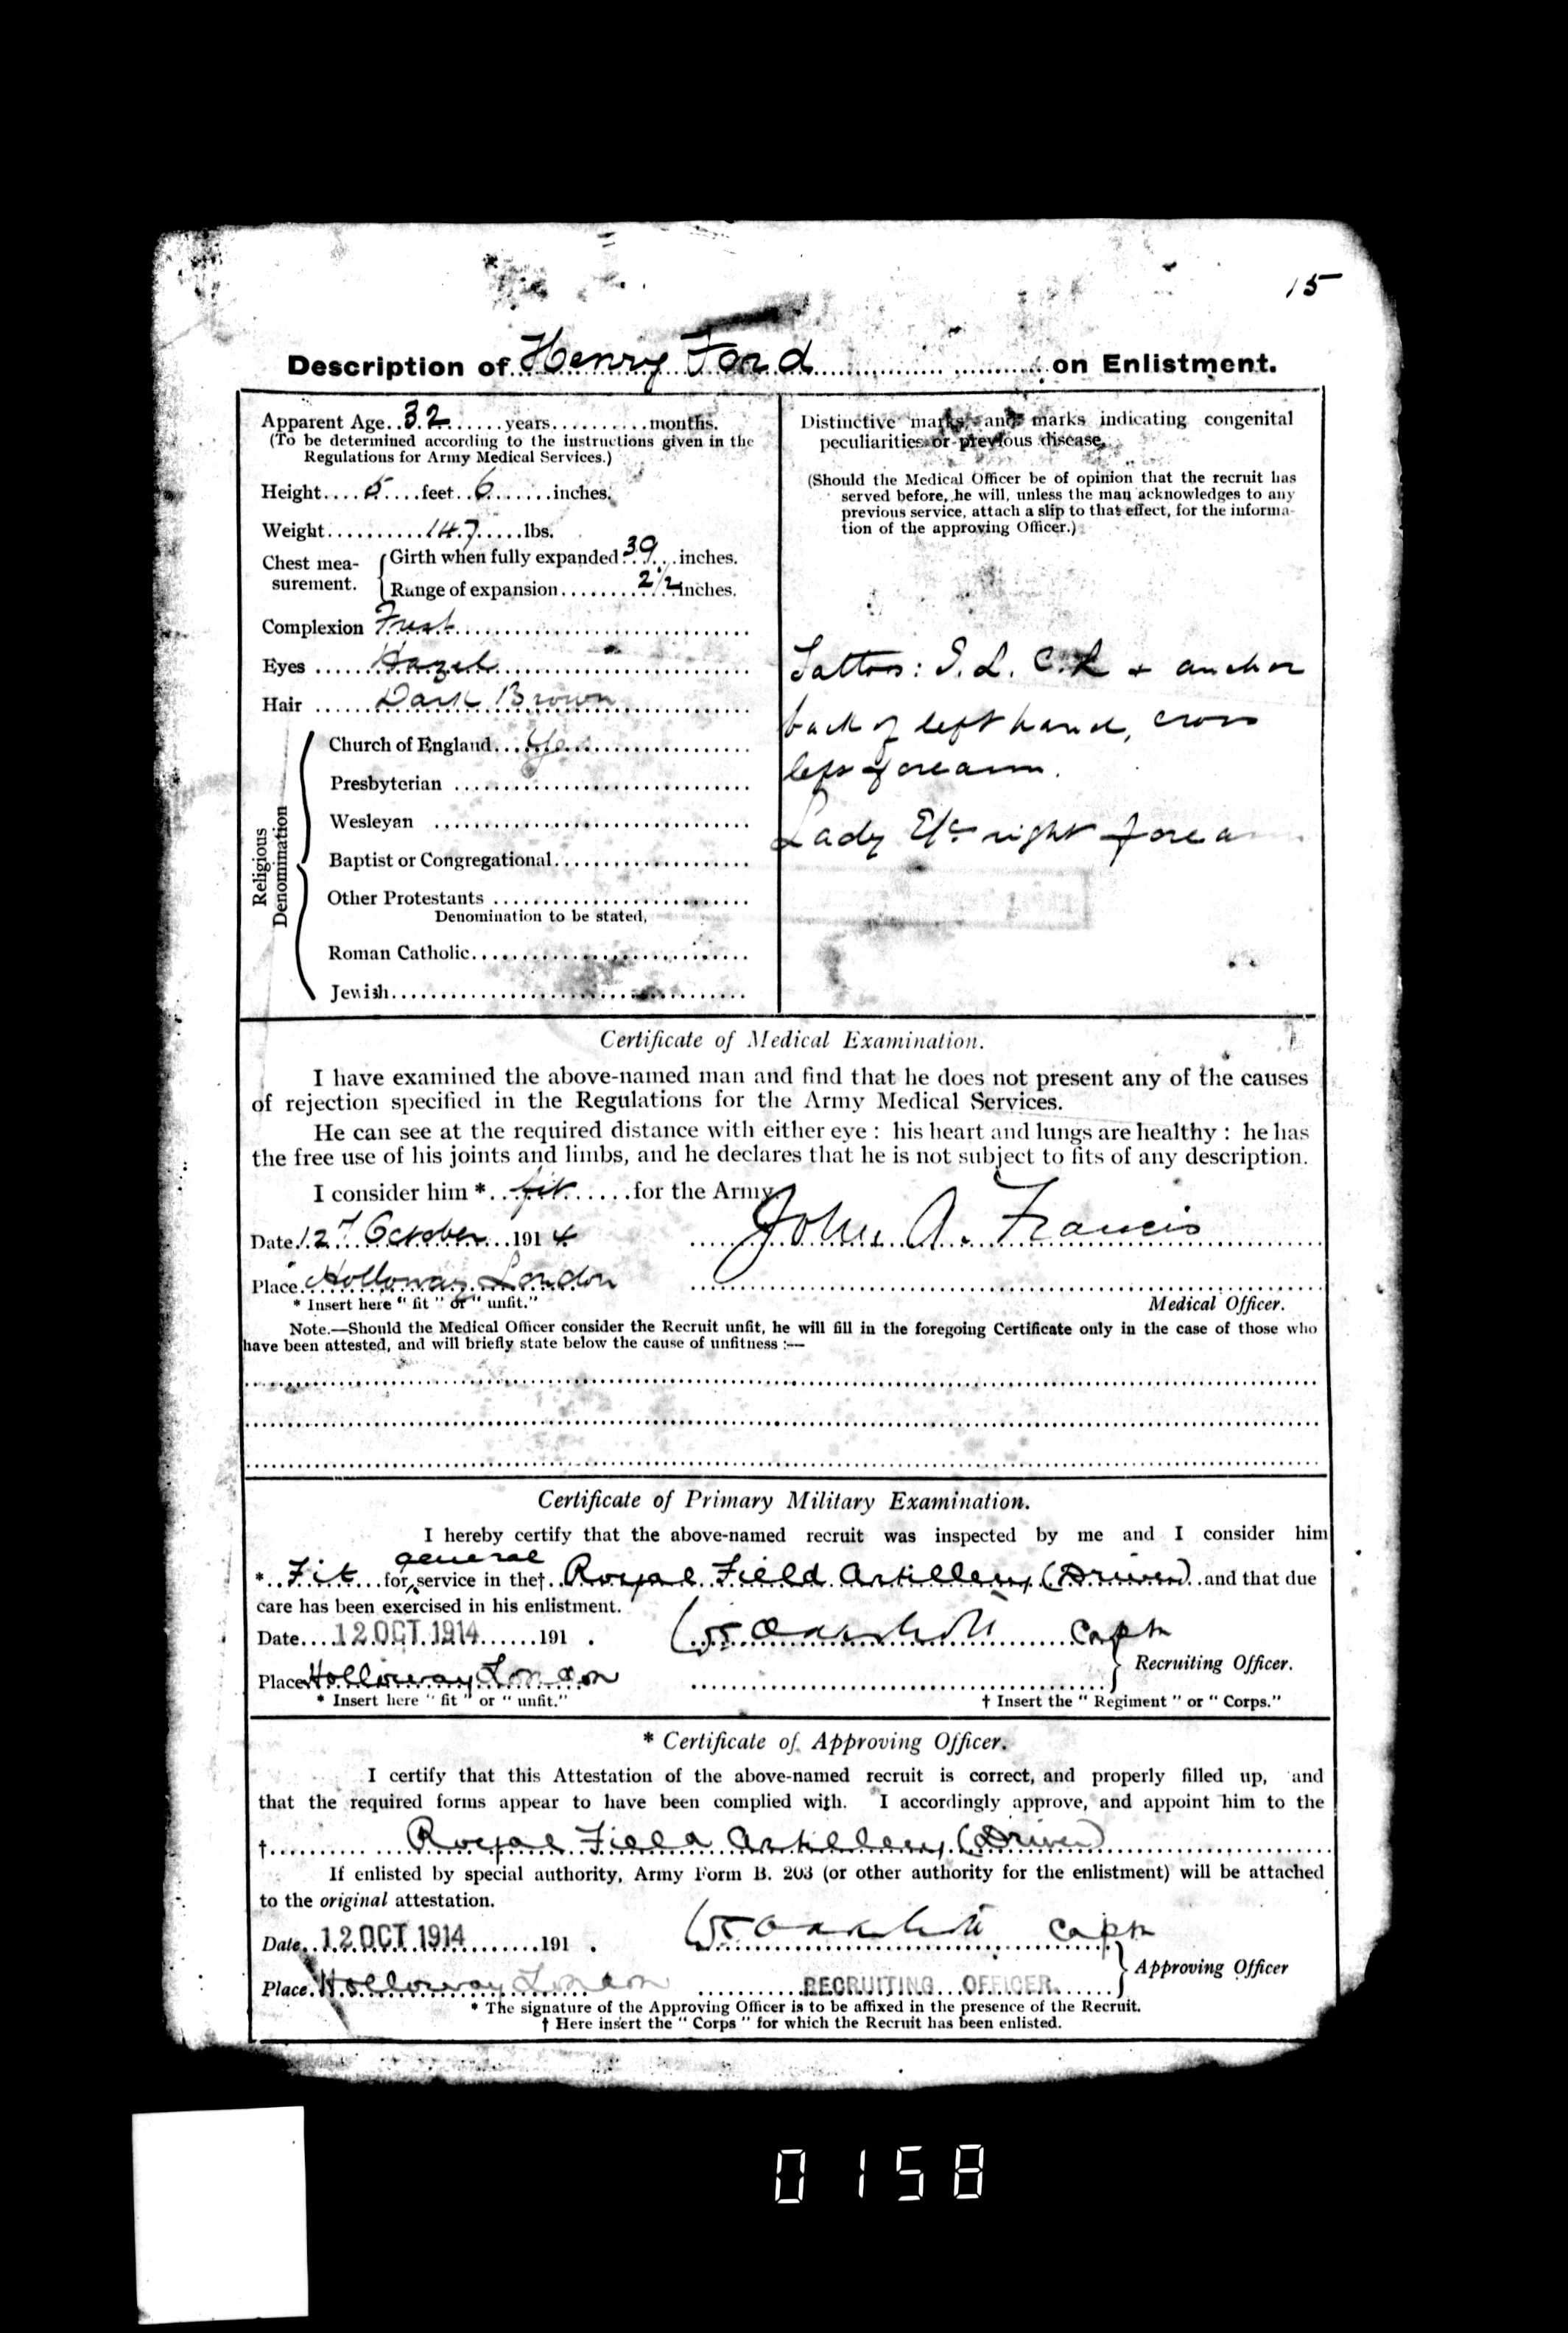 15
Description of Henry Ford on Enlistment.
Apparent Age 32 years months.
(To be determined according to the instructions given in the
Regulations for Army Medical Services.)
Height 5 feet 6 inches.
Weight 147 lbs.
Chest mea-
surement.
Girth when fully expanded 39 inches.
Range of expansion 2½ inches.
Complexion Fresh
Eyes Hazel
Hair Dark Brown
Religious
Denomination
Church of England Yes
Presbyterian
Wesleyan
Baptist or Congregational
Other Protestants
Denomination to be stated,
Roman Catholic
Jewish
Distinctive marks, and marks indicating congenital
peculiarities or previous disease.
(Should the Medical Officer be of opinion that the recruit has
served before, he will, unless the man acknowledges to any
previous service, attach a slip to that effect, for the informa-
tion of the approving Officer.)
Tattoos: I.L. C.L + anchor
back of left hand, cross
left forearm.
Lady Etc right forea
Certificate of Medical Examination.
I have examined the above-named man and find that he does not present any of the causes
of rejection specified in the Regulations for the Army Medical Services.
He can see at the required distance with either eye : his heart and lungs are healthy : he has
the free use of his joints and limbs, and he declares that he is not subject to fits of any description.
I consider him * fit for the Army
Date 12th October 1914 John A. Francis
Place Holloway London
* Insert here "fit" or "unfit."
Medical Officer.
Note.—Should the Medical Officer consider the Recruit unfit, he will fill in the foregoing Certificate only in the case of those who
have been attested, and will briefly state below the cause of unfitness :—
Certificate of Primary Military Examination.
I hereby certify that the above-named recruit was inspected by me and I consider him
general
* Fit for service in the† Royal Field Artillery (Driver) and that due
care has been exercised in his enlistment.
Date 12 OCT. 1914 191 . Captn
Place Holloway London
Recruiting Officer.
* Insert here "fit" or "unfit."
† Insert the "Regiment" or "Corps."
* Certificate of Approving Officer.
I certify that this Attestation of the above-named recruit is correct, and properly filled up, and
that the required forms appear to have been complied with. I accordingly approve, and appoint him to the
† Royal Field Artillery (Driver)
If enlisted by special authority, Army Form B. 203 (or other authority for the enlistment) will be attached
to the original attestation.
Date 12 OCT 1914 191 . Captn
Approving Officer
Place Holloway London RECRUITING OFFICER.
* The signature of the Approving Officer is to be affixed in the presence of the Recruit.
† Here insert the "Corps" for which the Recruit has been enlisted.
0158